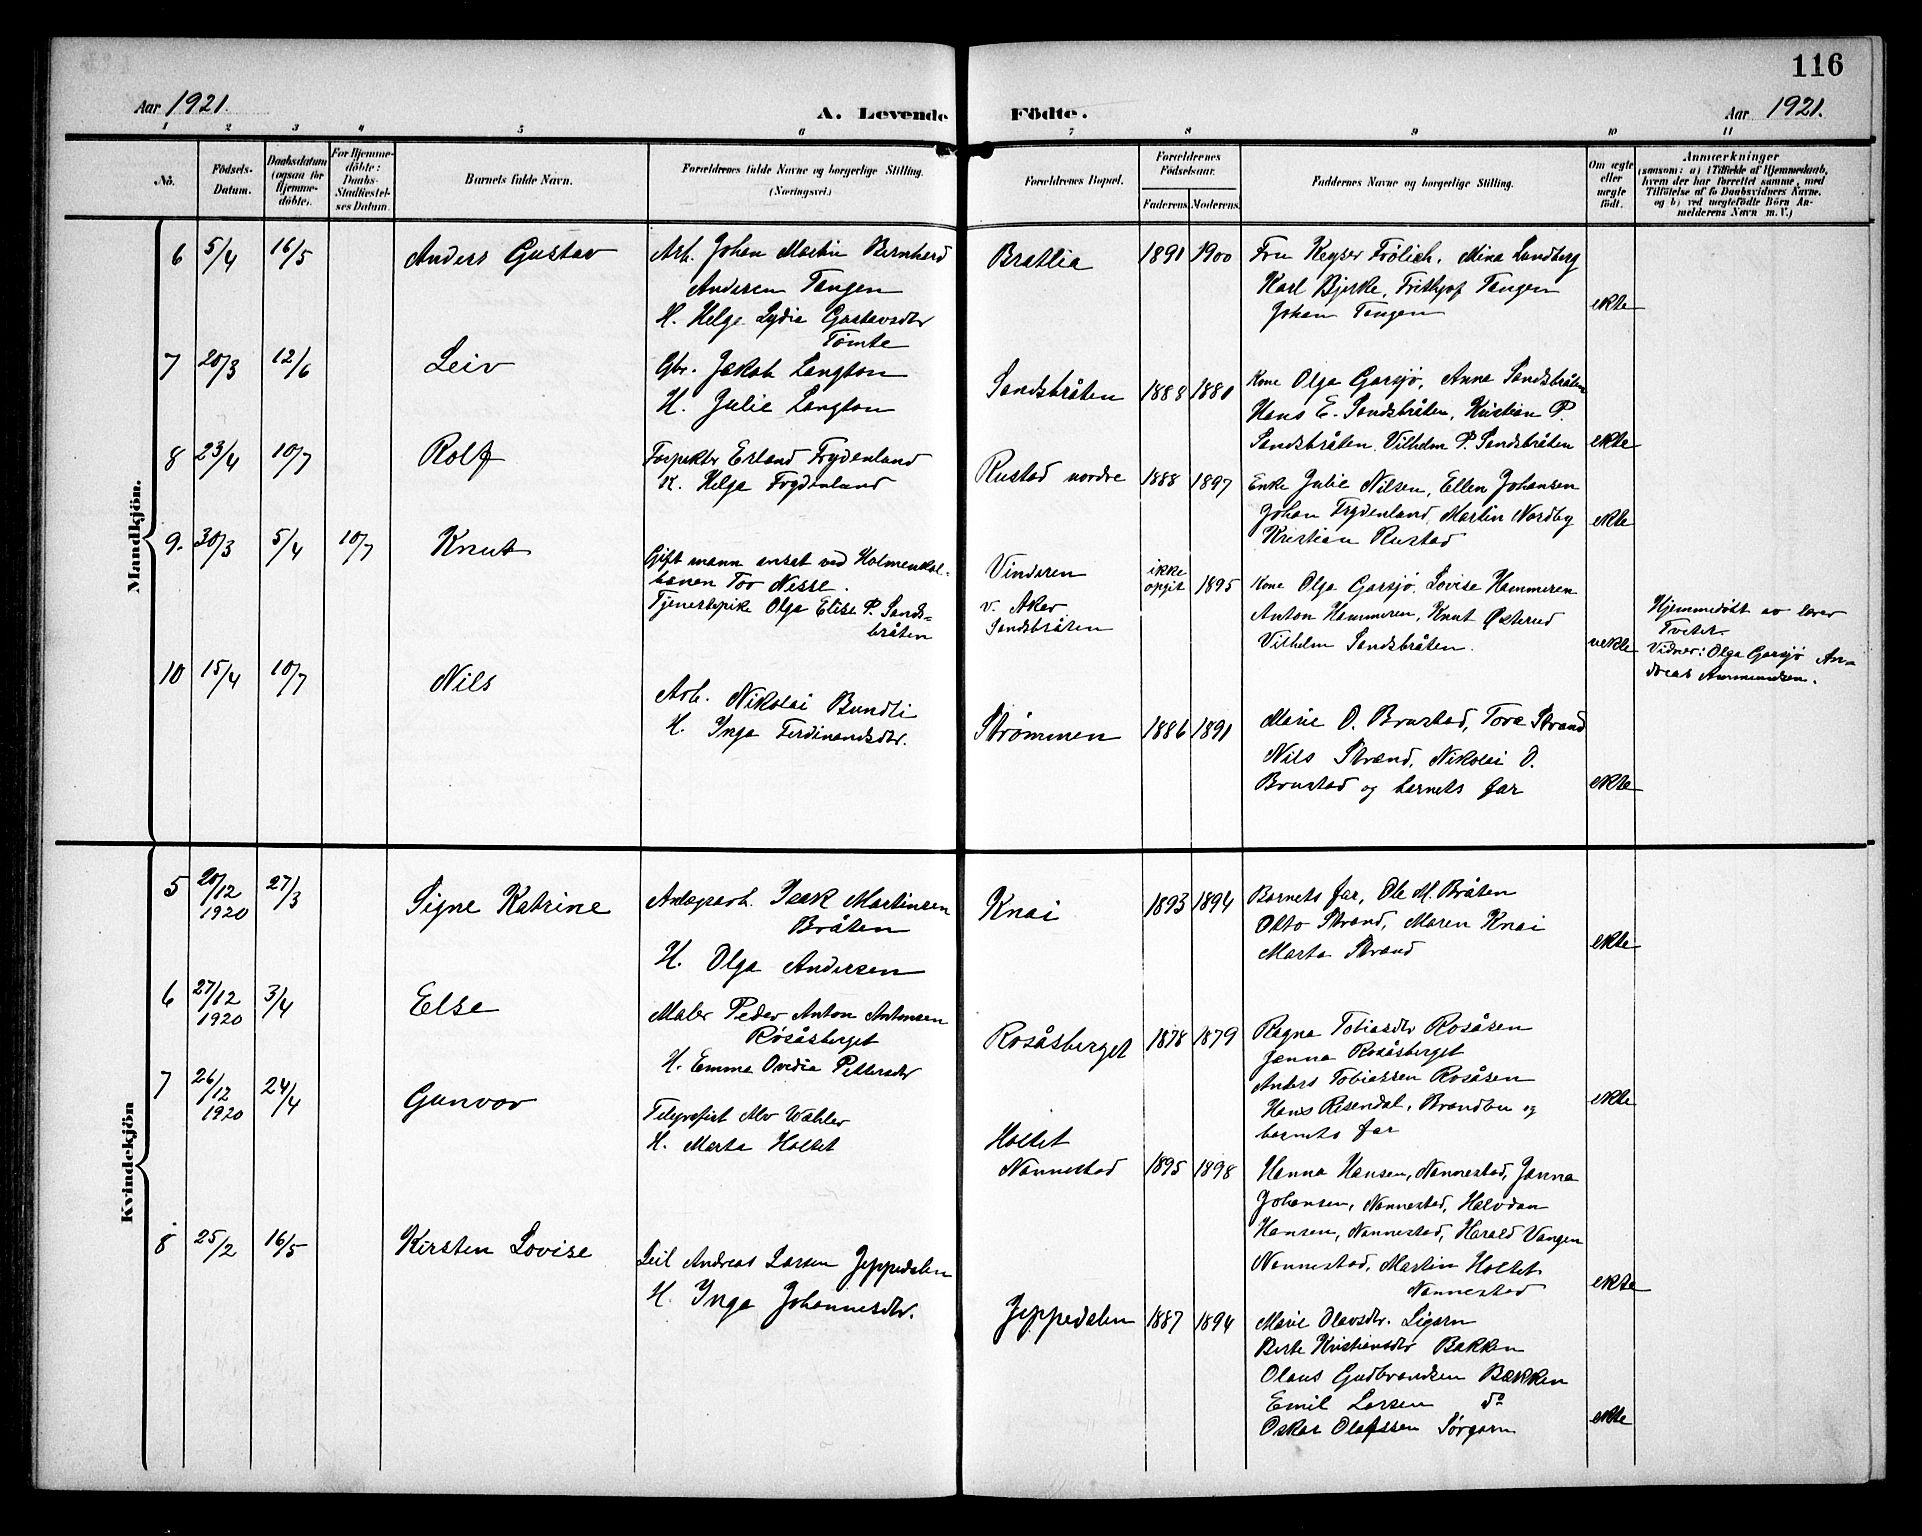 116
Aar 1921.
A. Levende Födte.
Aar 1921.
1 2 3 4 5 6 7 8 9 10 11
No.
Födsels-
Datum.
Daabsdatum
(ogsaa for
Hjemme-
döbte).
For Hjemme-
döbte:
Daabs-
Stadfæstel-
ses Datum.
Barnets fulde Navn.
Forældrenes fulde Navne og borgerlige Stilling.
(Næringsvei.)
Forældrenes Bopæl.
Forældrenes
Födselsaar.
Faderens. Moderens.
Faddernes Navne og borgerlige Stilling.
Om ægte
eller
uægte
født.
Anmærkninger
(saasom: a) i Tilfælde af Hjemmedaab,
hvem der har forrettet samme, med
Tilföielse af to Daabsvidners Navne,
og b) ved uægtefödte Börn An-
melderens Navn m. V.)
Mandkjön.
6 5/4 16/5 Anders Gustav
Arb. Johan Martin Bernhard
Andersen Tangen
H. Helga Lydia Gustavsdtr
Tømte
Bratlia 1891 1900
Fru Keyser Frölich, Mina Sandberg
Karl Bjerke, Frithjof Tangen
Johan Tangen
ekte
7 20/3 12/6 Leiv
Gbr. Jakob Langton
H. Julie Langton
Sandsbråten 1888 1880
Kone Olga Garsjø, Anna Sandsbråten
Hans E. Sandsbråten, Kristian P.
Sandsbråten, Vilhelm P. Sandsbråten
ekte
8 23/4 10/7 Rolf
Forpakter Erland Frydenlund
H. Helga Frydenlund
Rustad nordre 1888 1897
Enke Julie Nilsen, Ellen Johansen
Johan Frydenlund, Martin Nordby
Kristian Rustad
ekte
9. 30/3 5/4 10/7 Knut
Gift mann ansat ved Holmenkol-
banen Tor Nesse.
Tjenestepike Olga Elise P. Sands-
bråten
Vinderen
v. Aker
Sandsbråten
ikke
opgit
1895
Kone Olga Garsjø, Lovise Hammeren
Anton Hammeren, Knut Østerud
Vilhelm Sandsbråten.
uekte
Hjemmedøbt av lærer
Tveter
Vidner: Olga Garsjø An-
dreas Ammundsen.
10 15/4 10/7 Nils
Arb. Nikolai Bundli
H. Inga Ferdinandsdtr.
Strømmen 1886 1891
Marie O. Brustad, Tora Strand
Nils Strand, Nikolai O.
Brustad og barnets far
ekte
Kvindekjön
5 20/12
1920
27/3 Signe Katrine
Anlegsarb. Isak Martinsen
Bråten
H. Olga Andersen
Knai 1893 1894
Barnets far, Ole M. Bråten
Otto Strand, Maren Knai
Marta Strand
ekte
6 27/12
1920
3/4 Else
Maler Peder Anton Antonsen
Rosåsberget
H. Emma Ovidia Pettersdtr
Rosåsberget 1878 1879
Ragna Tobiasdtr Rosåsen
Janna Rosåsberget
Anders Tobiassen Rosåsen
Hans Risendal, Brandbu og
barnets far
ekte
7 26/12
1920
24/4 Gunvor
Telegrafist Alv Wæhler
H. Marta Holtet
Holtet
Nannestad 1895 1898
Hanna Hansen, Nannestad, Janna
Johansen, Nannestad, Halvdan
Hansen, Nannestad, Harald Vangen
Nannestad, Martin Holtet
Nannestad
ekte
8 25/2 16/5 Kirsten Lovise
Leil Andreas Larsen Jeppedalen
H. Inga Johannesdtr.
Jeppedalen 1887 1894
Marie Olavsdtr. Ligarn
Berte Kristiansdtr Bakken
Olaus Gudbrandsen Bakken
Emil Larsen do
Oskar Olafssen Sørgarn
ekte